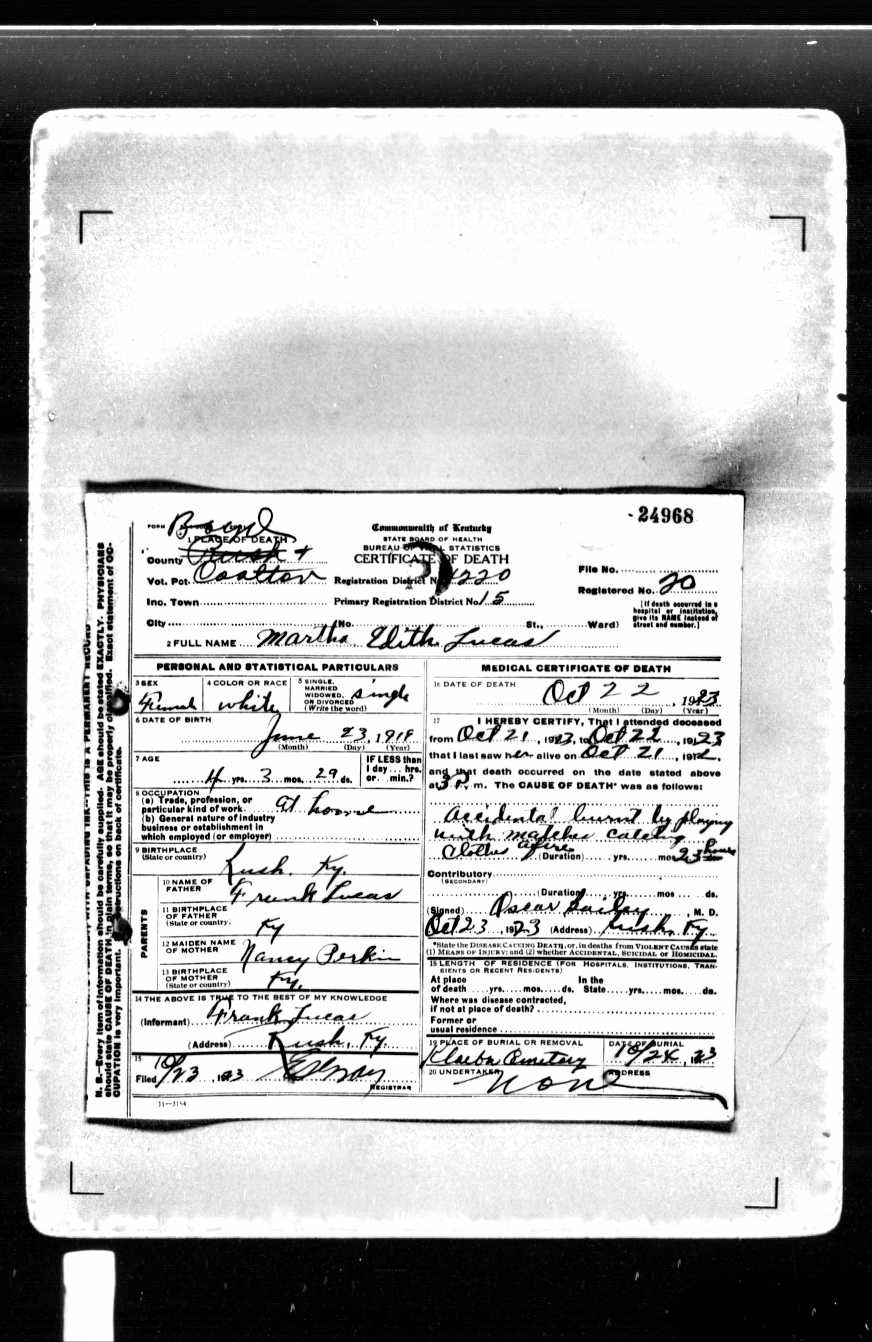 24968
FORM
Boyd
Commonwealth of Kentucky
1 PLACE OF DEATH
STATE BOARD OF HEALTH
BUREAU OF VITAL STATISTICS
County Rush +
CERTIFICATE OF DEATH
File No.
Vot. Pct. Coalton
Registration District No. 1220
Registered No. 20
Inc. Town
Primary Registration District No. 15
[If death occurred in a hospital or institution, give its NAME instead of street and number.]
City (No. St., Ward)
2 FULL NAME Martha Edith Lucas
PERSONAL AND STATISTICAL PARTICULARS
3 SEX
Female
4 COLOR OR RACE
white
5 SINGLE, MARRIED WIDOWED, OR DIVORCED (Write the word)
single
6 DATE OF BIRTH
June 23, 1919
(Month) (Day) (Year)
7 AGE
4 yrs. 3 mos. 29 ds.
IF LESS than 1 day... hrs. or... min.?
8 OCCUPATION
(a) Trade, profession, or particular kind of work at home
(b) General nature of industry business or establishment in which employed (or employer)
9 BIRTHPLACE
(State or country)
Rush, Ky.
PARENTS
10 NAME OF FATHER
Frank Lucas
11 BIRTHPLACE OF FATHER
(State or country.
Ky
12 MAIDEN NAME OF MOTHER
Nancy Perkin
13 BIRTHPLACE OF MOTHER
(State or country)
Ky.
14 THE ABOVE IS TRUE TO THE BEST OF MY KNOWLEDGE
(Informant) Frank Lucas
(Address) Rush, Ky.
15
Filed 10/23, 1923
REGISTRAR
11—3184
MEDICAL CERTIFICATE OF DEATH
16 DATE OF DEATH
Oct 22, 1923
(Month) (Day) (Year)
17 I HEREBY CERTIFY, That I attended deceased
from Oct 21, 1923, to Oct 22, 1923
that I last saw her alive on Oct 21, 1912,
and that death occurred on the date stated above
at 3 P. m. The CAUSE OF DEATH* was as follows:
Accidental burnt by playing
with matches catching
Clothes afire
(Duration) yrs. mos 23 hours
Contributory
(SECONDARY)
(Duration) yrs. mos ds.
(Signed) Oscar, M. D.
Oct 23, 1923 (Address) Rush, Ky.
*State the DISEASE CAUSING DEATH, or, in deaths from VIOLENT CAUSES state
(1) MEANS OF INJURY; and (2) whether ACCIDENTAL, SUICIDAL or HOMICIDAL.
18 LENGTH OF RESIDENCE (FOR HOSPITALS, INSTITUTIONS, TRANSIENTS OR RECENT RESIDENTS)
At place In the
of death yrs. mos. ds. State yrs. mos. ds.
Where was disease contracted,
if not at place of death?
Former or
usual residence
19 PLACE OF BURIAL OR REMOVAL
Cemetery
DATE OF BURIAL
10/24, 1923
20 UNDERTAKER
None
ADDRESS
N. B.—Every item of information should be carefully supplied. AGE should be stated EXACTLY. PHYSICIANS
should state CAUSE OF DEATH in plain terms, so that it may be properly classified. Exact statement of OC-
CUPATION is very important. instructions on back of certificate.